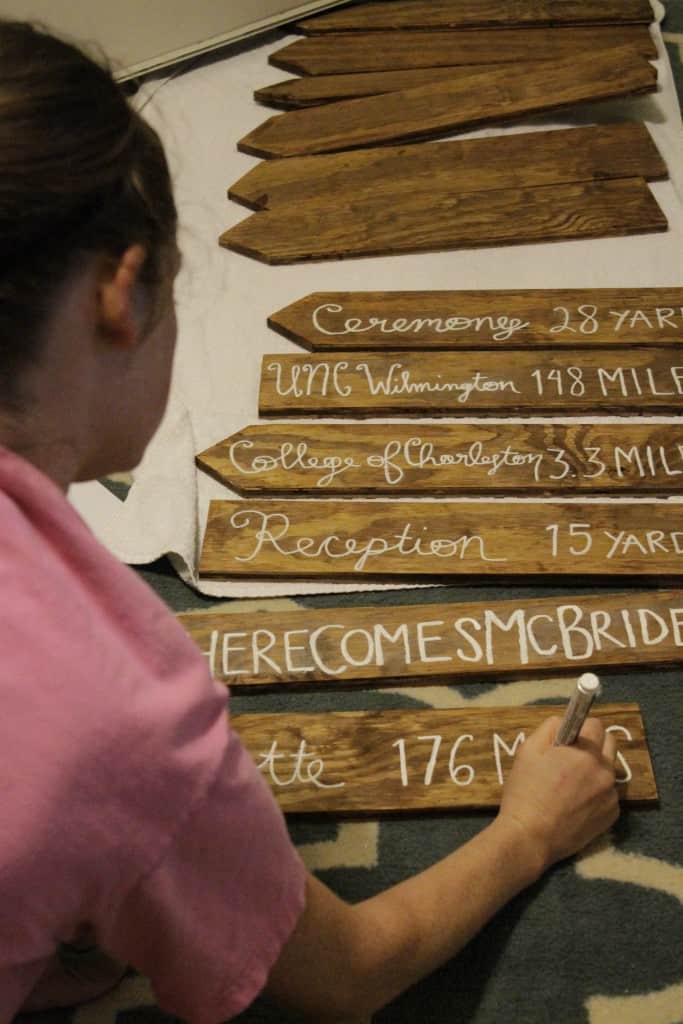 Ceremony 28 YAR
UNC Wilmington 148 MILE
College of Charleston 3.3 MIL
Reception 15 YARD
HERECOMESMCBRIDE
tte 176 M S